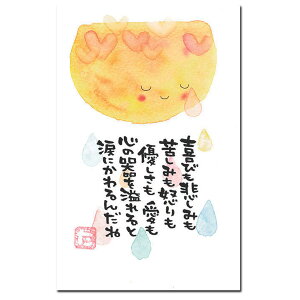 喜びも悲しみも
苦しみも怒りも
優しさも 愛も
心の器を溢れると
涙にかわるんだね